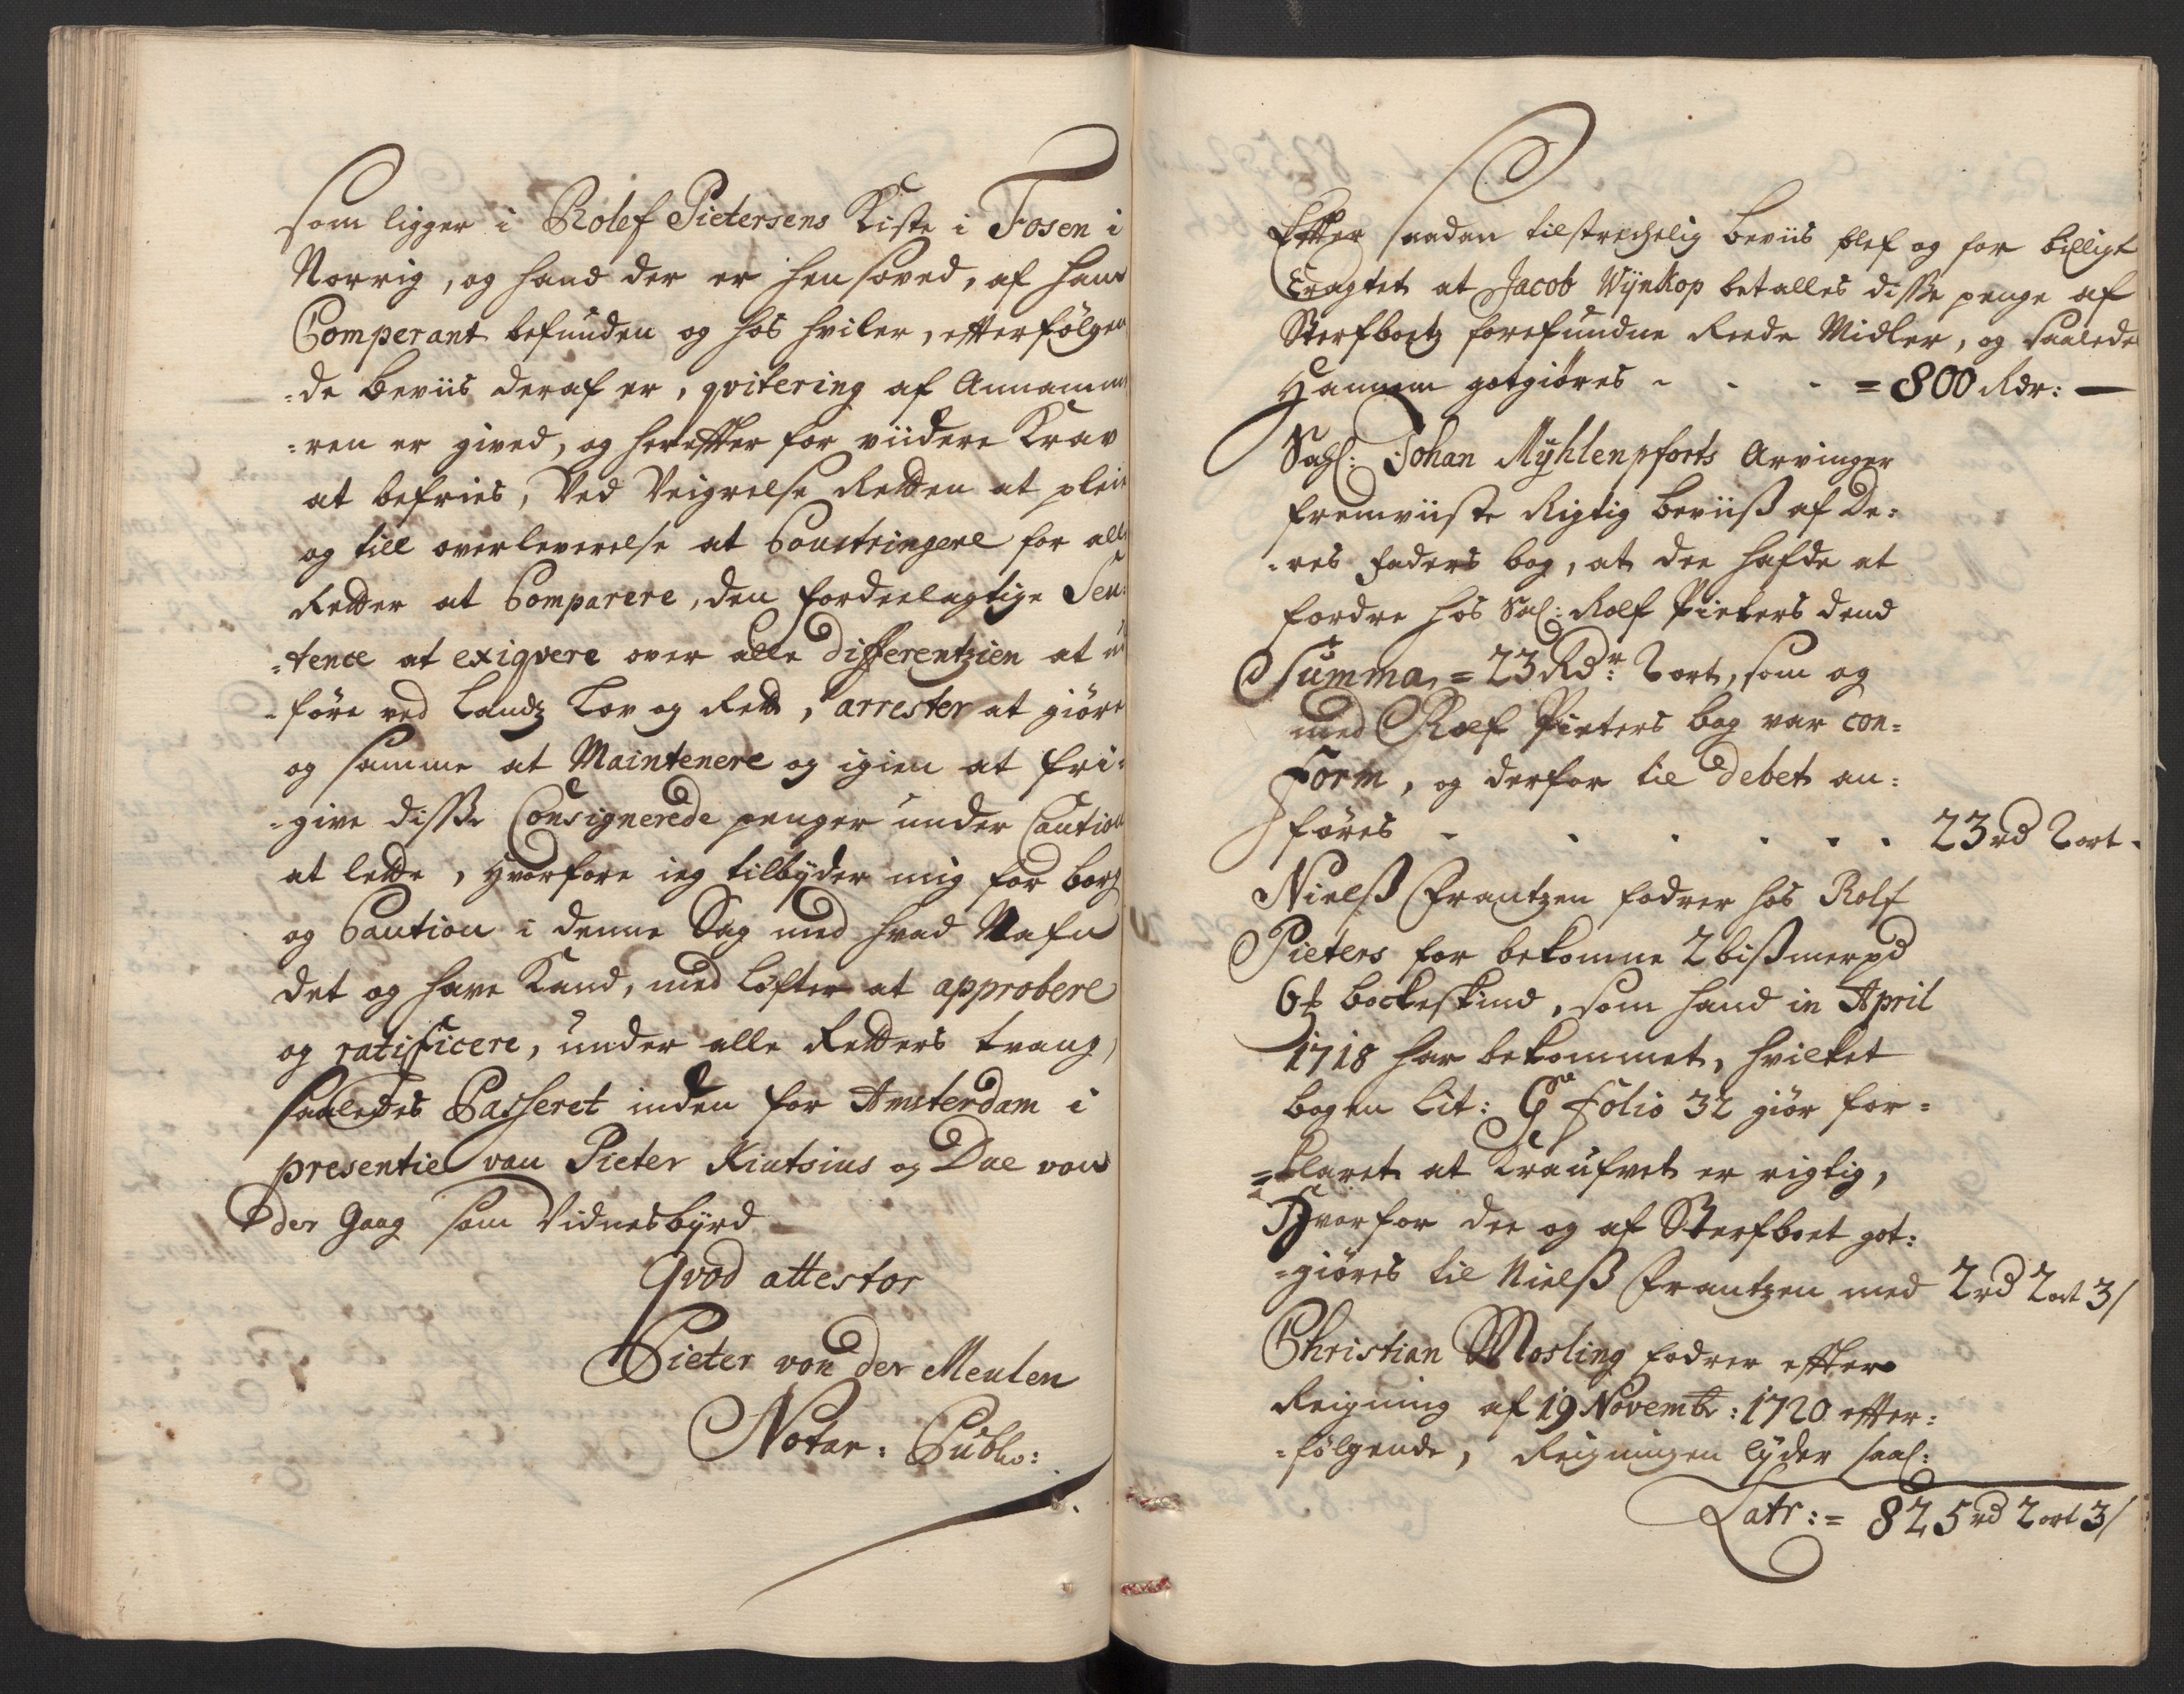 som ligger i Rolef Pietersens Kiste i Fosen i
Norrig, og hand der er hensoved, af hans
Comperant befunden og hos hviler, efterfølgen
=de beviis deraf er, qvitering af Annamme
=ren er gived, og herefter for viidere Krav
at befries, Ved Veigrelse Retten at pleie
og till overleverelse at Constringere for alle
Retter at Comparere, den fordeelagtige Sen:
=tence at exiqvere over alle differentzien at u
=føre ved Landz Lov og Rett, arrester at giøre
og samme at Maintenere og igien at fri:
=give disse Consignerede penger under Caution
at lette, hvorfore ieg tilbyder mig for borg
og Caution i denne Sag med hvad Nafn
det og have Kand, med løfter at approbere
og ratificere, under alle Retters tvang,
saaledes Passeret inden for Amsterdam i
presentie van Pieter Kintsius og Dae van
der Gaag som Vidnesbyrd
Qvod attestor
Pieter von der Meulen
Notar: Publ:
Efter saadan tilstrechelig beviis blef og for billigt
Eragtet at Jacob Wÿnkop betalles disse penge af
Sterfboetz forefundne Reede Midler, og saalede
Hannem gotgiøres - - - = 800 Rdr: —
Sahl: Johan Mÿhlenpforts Arvinger
fremviiste Rigtig beviiß af De:
=res Faders bog, at dee hafde at
fordre hos Sal: Rolf Pieters dend
Summa, = 23 Rdr: 2 ort, som og
med Rolf Pieters bog var con=
Form, og derfor til debet an:
føres - - - - - - 23 rd 2 ort.
Nielß Frantzen fodrer hos Rolf
Pieters for bekomne 2 bißmerpd
6 ℔ bockeskind, som hand in April
1718 har bekommet, hvilket
bogen Lit: G Folio 32 giør for=
=klaret at Kraufvet er rigtig,
Hvorfor dee og af Sterfboet got:
=giøres til Nielß Frantzen med 2 rd 2 ort 3/
Christian Mosling fodrer efter
Reigning af 19 Novembr: 1720 efter:
=følgende, Reigningen lyder saal:
Latr: = 825 rd 2 ort 3/